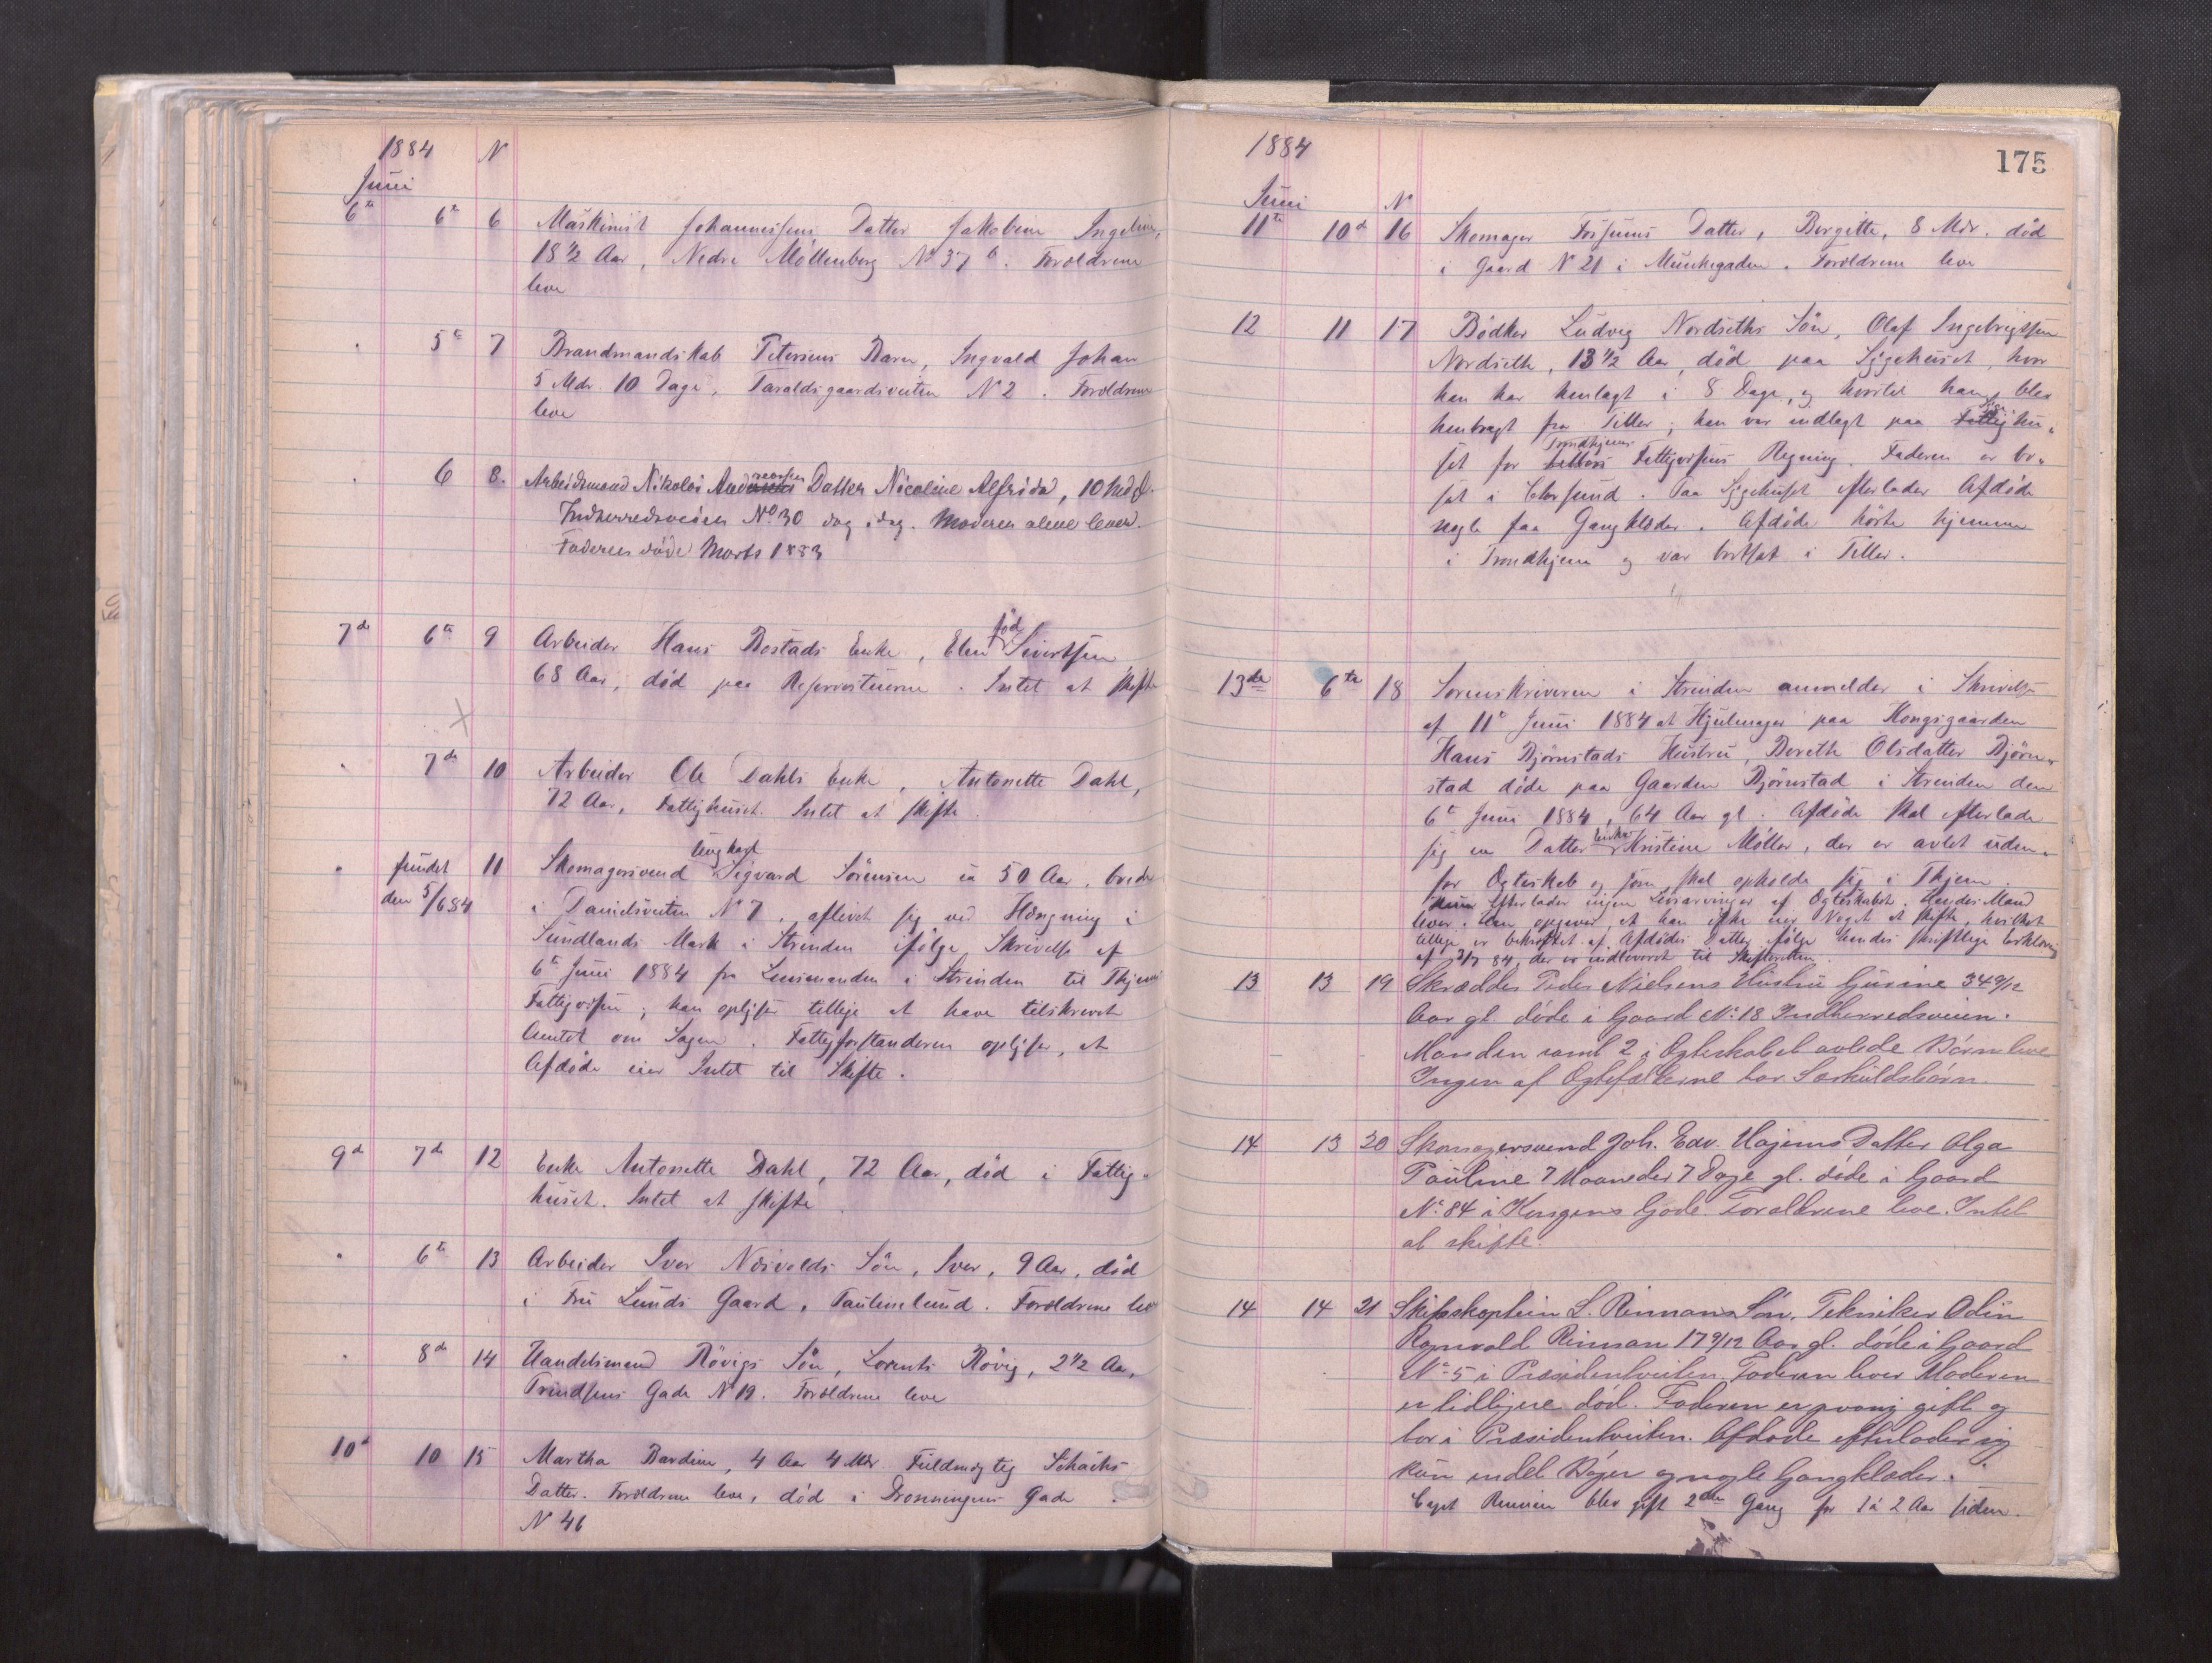 1884 N
Juni
6te 6te 6 Maskinist Johannesens Datter Jakobine Ingeline,
18 1/2 Aar, Nedre Møllenberg No 37 b. Forældrene
leve
" 5te 7 Brandmandskab Petersens Barn, Ingvald Johan
5 Mdr. 10 Dage, Taraldsgaardsveiten N 2. Forældrene
leve
" 6 8. Arbeidsmand Nikolai Andreassen Datter Nicoline Alfrida,
Indherredsveien No 30 Moderen alene lever.
Faderen døde Marts 1883
7de 6te 9 Arbeider Hans Bostads Enke, Elen fød Sivertsen
68 Aar, død paa Reservestuerne. Intet at skifte
" 7de 10 Arbeider Ole Dahls Enke, Antonette Dahl,
72 Aar, Fattighuset. Intet at skifte.
" fundet 11 Skomagersvend Ungkarl Sigvard Sørensen ca 50 Aar, boede
den 5/6 84 i Danielsveiten No 7, aflivet sig ved Hængning i
Sundlands Mark i Strinden ifølge Skrivelse af
6te Juni 1884 fra Lensmanden i Strinden til Thjems
Fattigvæsen; han oplyser tillige at have tilskrevet
Amtet om Sagen. Fattigforstanderen oplyser, at
Afdøde eier Intet til Skifte.
9de 7de 12 Enke Antonette Dahl, 72 Aar, død i Fattig-
huset. Intet at skifte
" 6te 13 Arbeider Iver Næsvolds Søn, Iver, 9 Aar, død
i Fru Lunds Gaard, Paulinelund. Forældrene leve
" 8de 14 Handelsmand Røvigs Søn, Lorents Røvig, 2 1/2 Aar,
Trundsens Gade No 19. Forældrene leve
10de 10 15 Martha Bardine, 4 Aar 4 Mdr. Fuldmægtig Schachs
Datter. Forældrene leve, død i Dronningens Gade
N 46
1884 175
Juni N
11te 10de 16 Skomager Fossums Datter, Bergitte, 8 Mdr. død
i Gaard N 21 i Munkegaden. Forældrene leve
12 11 17 Bødker Ludvig Nordseths Søn, Olaf Ingebrigtsen
Nordseth, 13 1/2 Aar, død paa Sygehuset, hvor
han har henlagt i 8 Dage, og hvortil han blev
henbragt fra Tiller; han var indlagt paa Fattig Syge hu-
set for Tillers Trondhjems Fattigvæsens Regning. Faderen er bo-
sat i . Paa Sygehuset efterlader Afdøde
nogle faa Gangklæder. Afdøde hørte hjemme
i Trondhjem og var bortsat i Tiller.
13de 6te 18 Sorenskriveren i Strinden anmelder i Skrivelse
af 11te Juni 1884 at Hjulmager paa Kongsgaarden
Hans Bjørnstads Hustru, Berethe Olsdatter Bjørn-
stad døde paa Gaarden Bjørnstad i Strinden den
6te Juni 1884, 64 Aar gl. Afdøde skal efterlade
sig en Datter Enke Kristine Møller, der er avlet uden-
for Ægteskab og som skal opholde sig i Thjem.
Hun efterlader ingen Livsarvinger af Ægteskabet. Hendes Mand
lever. Han opgiver, at han ikke eier Noget at skifte, hvilket
tillige er bekræftet af Afdødes Datter ifølge hendes skriftlige Erklæring
af 2/7 84, der er indleveret til Skifteretten.
13 13 19 Skrædder Peder Nielsens Hustru Gurine 34 9/12
Aar gl. døde i Gaard No 18 Indherredsveien.
Manden samt 2 i Ægteskabet avlede Børn leve
Ingen af Ægtefællerne har Særkuldsbørn.
14 13 20 Skomagersvend Joh. Edv. Hajems Datter Olga
Pauline 7 Maaneder 7 Dage gl. døde i Gaard
No 84 i Kongens Gade. Forældrene leve. Intet
at skifte.
14 14 21 Skibskaptein L. Rinmans Søn, Tekniker Odin
Ragnvald Rinman 17 9/12 Aar gl. døde i Gaard
No 5 i Præsidentveiten. Faderen lever Moderen
er tidligere død. Faderen er paany gift og
bor i Præsidentveiten. Afdøde efterlader sig
kun endel Bøger og nogle Gangklæder.
Capt Rinman blev gift 2den Gang for 1 á 2 Aar siden.